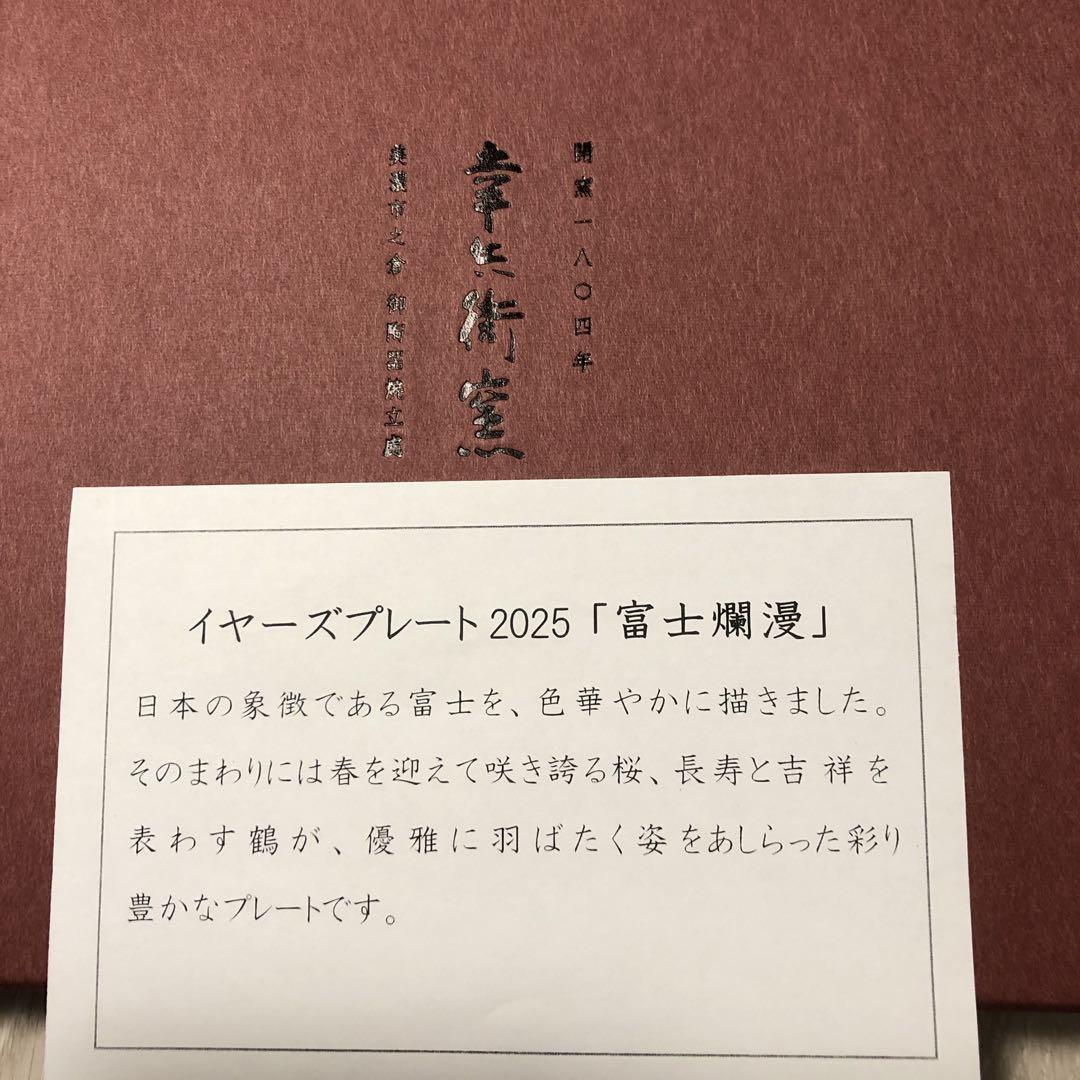 開窯一八〇四年
幸兵衛窯
美濃市之倉 御陶器焼立處
イヤーズプレート2025「富士爛漫」
日本の象徴である富士を、色華やかに描きました。
そのまわりには春を迎えて咲き誇る桜、長寿と吉祥を
表わす鶴が、優雅に羽ばたく姿をあしらった彩り
豊かなプレートです。